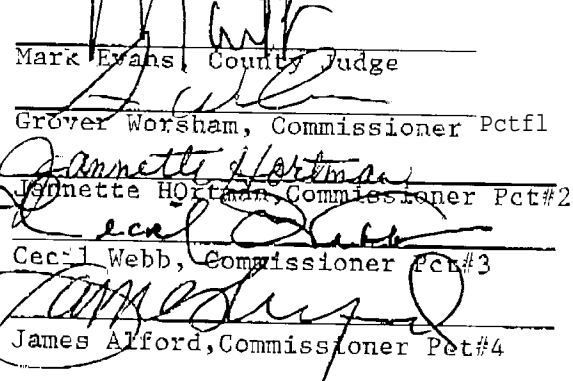 Mark Evans, County Judge
Grover Worsham, Commissioner Pctfl
Jannette Hortman
Jannette HOrtman,Commissioner Pct#2
Cecil Webb
Cecil Webb, Commissioner Pct#3
James Alford,Commissioner Pct#4